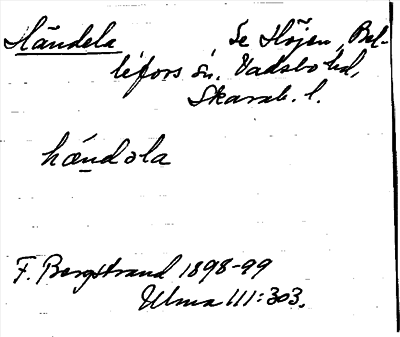 Händela Se Höjen, Bäl-
lefors sn. Vadsbo hd,
Skarab. l.
hǽndəla
F. Bergstrand 1898-99
Ulma 111:303.